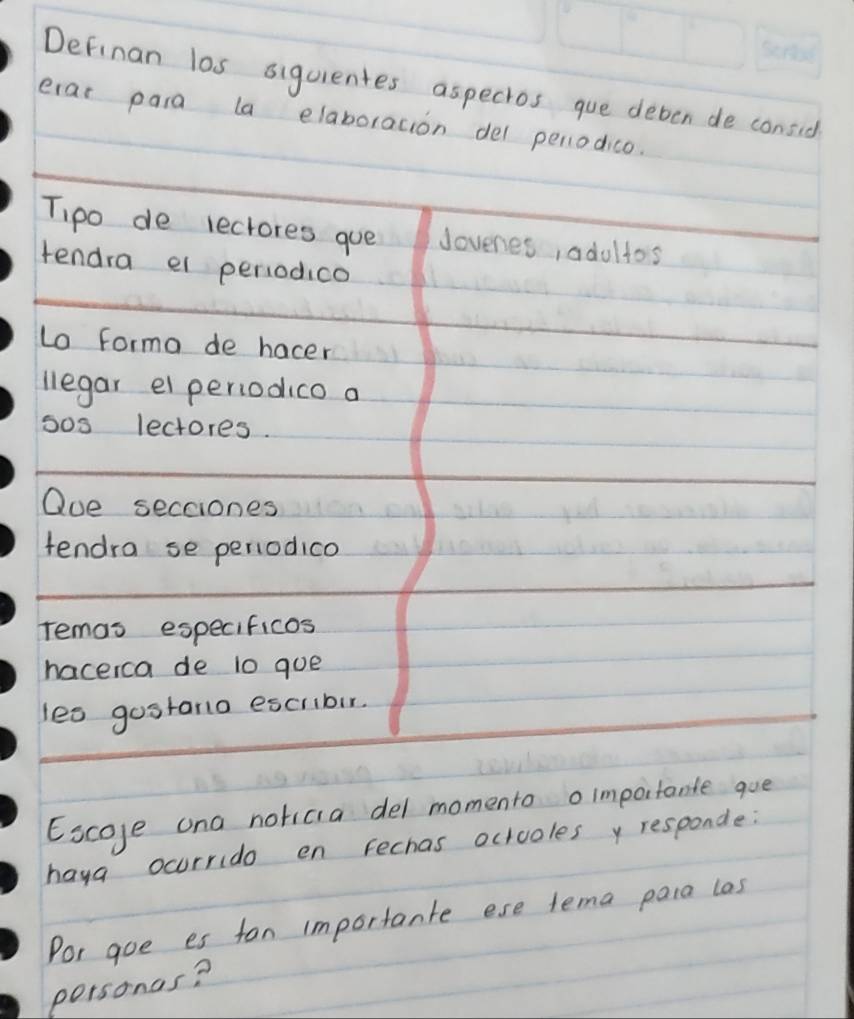 Definan los siguientes aspectos que deben de consid
erar para la elaboración del periodico.
Tipo de lectores que
tendra el periodico
Jovenes, adultos
La forma de hacer
llegar el periodico a
sos lectores.
Que secciones
tendra se periodico
Temas especificos
hacerca de lo que
les gostaria escribir.
Escoje una noticia del momento o importante que
haya ocurrido en fechas actuales y responde:
Por que es tan importante ese tema para las
personas?